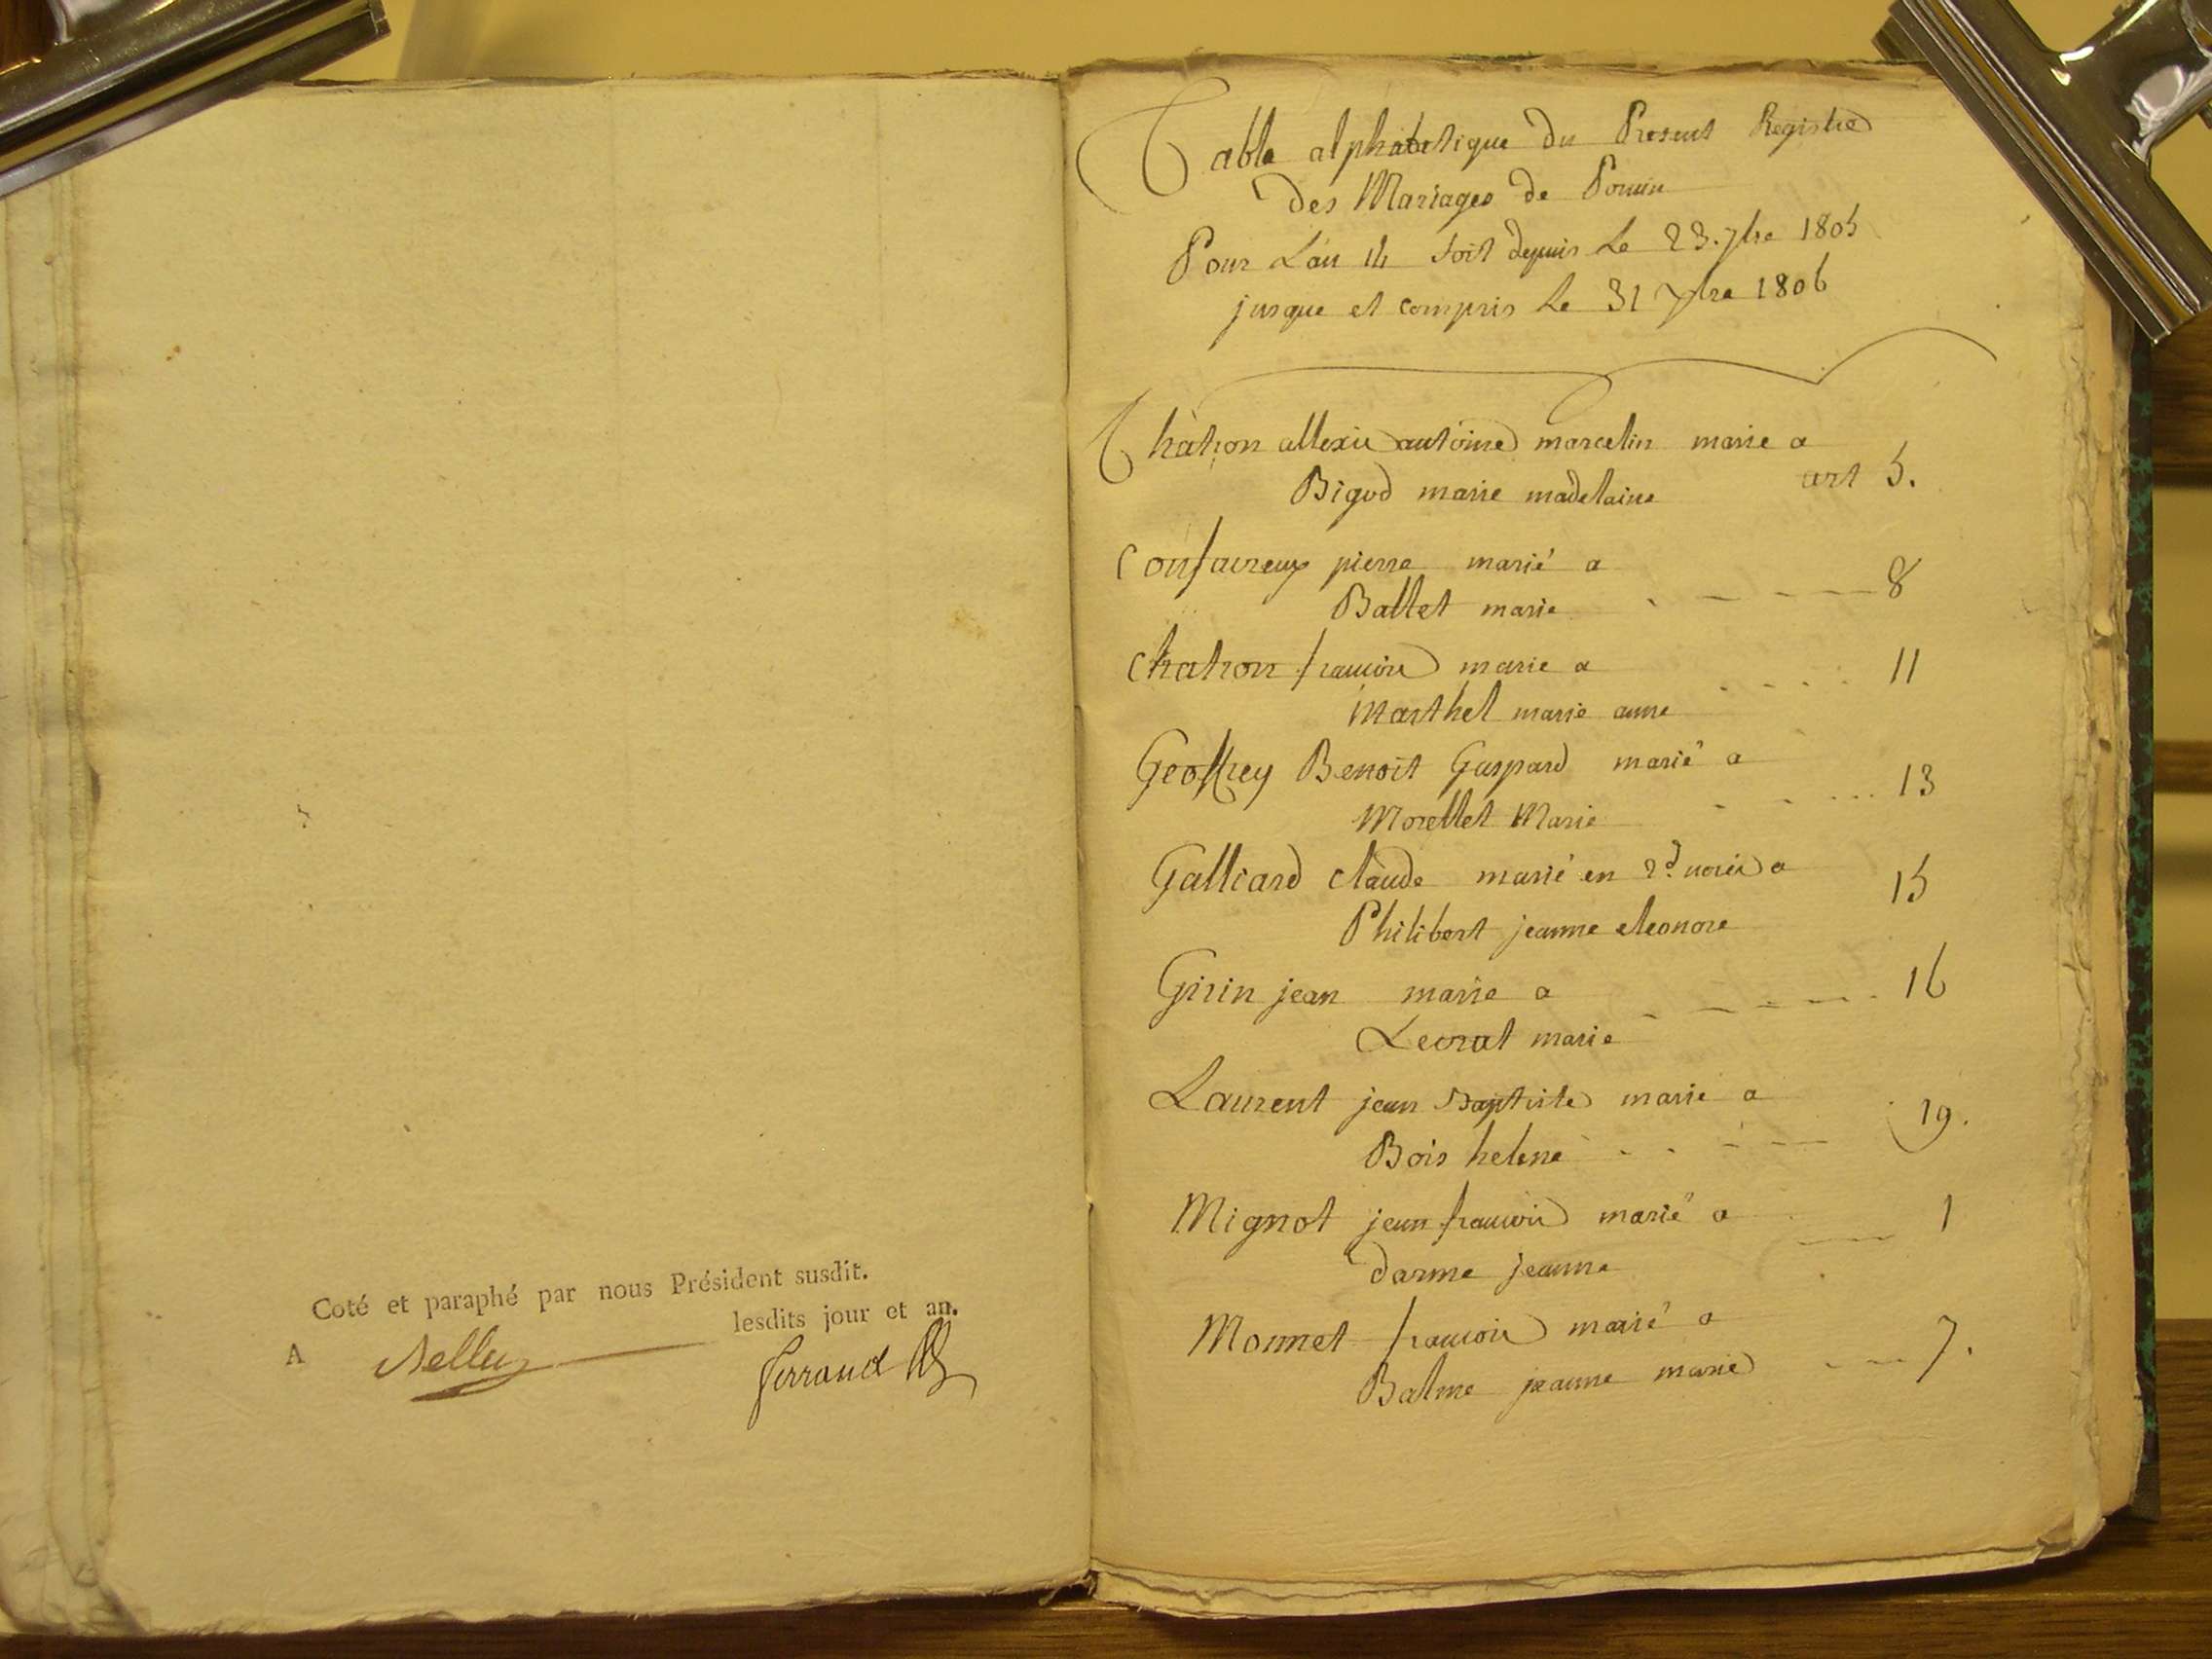 Coté et paraphé par nous Président susdit.
A Belley lesdits jour et an.
ferrand
Table alphabetique du Present Registre
des Mariages de Poncin
Pour L'an 14 soit depuis Le 23. 7bre 1805
jusque et compris Le 31 Xbre 1806
Chatron allexis antoine marcelin marie a
Bigod marie madelaine art 5.
pierre marié a
Ballet marie 8
Chatron francois marie a 11
Marthel marie anne
Geoffrey Benoit Gaspard marié a
Morellet Marie 13
Galliard claude marié en 2d. noces a
Philibert jeanne eleonore 15
Girin jean marie a 16
Lecrat marie
Laurent jean Baptiste marié a
Bois helene 19.
Mignot jean francois marié a 1
darme jeanne
Monnet francois marié a
Balme jeanne marie 7.